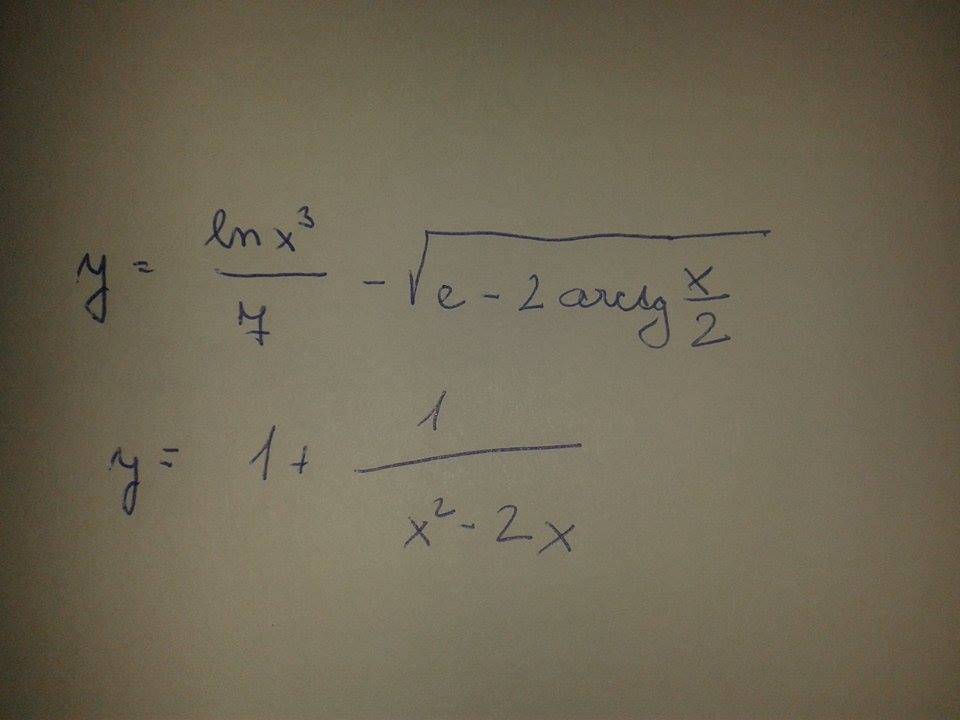 y = ln x³ / 7 - √(e - 2 arctg x/2)
y = 1 + 1 / (x² - 2x)